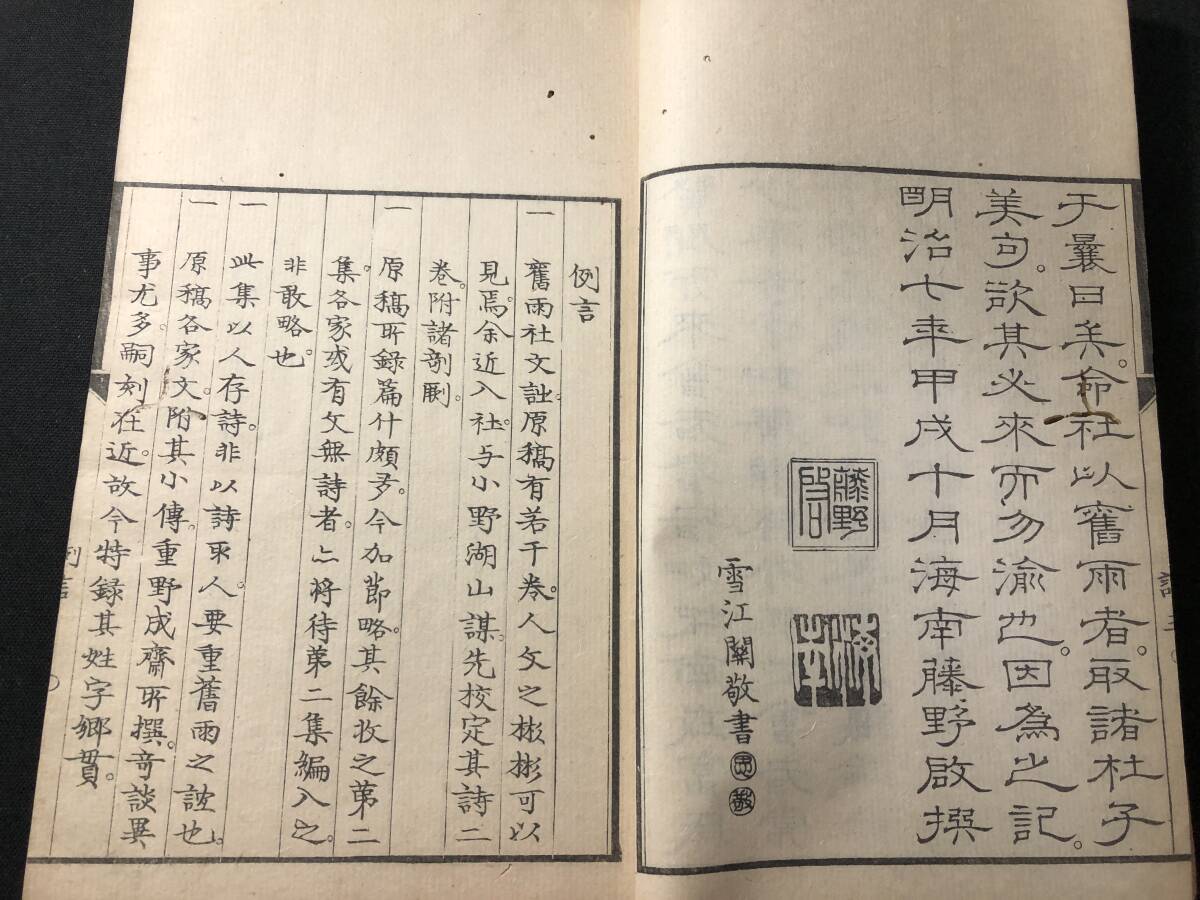 于曩日矣。命社以舊雨者。取諸杜子
美句。欲其必來而勿渝也。因爲之記。
明治七年甲戌十月海南藤野啟撰
藤野啟印
雪江關敬書
關
敬
例言
一 舊雨社文詩原稿有若干卷。人文之彬彬可以
見焉。余近入社。与小野湖山謀。先校定其詩二
卷。附諸剞劂。
一 原稿所錄篇什頗多。今加節略。其餘收之第二
集。各家或有文無詩者。亦將待第二集編入之。
非敢略也。
一 此集以人存詩。非以詩取人。要重舊雨之誼也。
一 原稿各家文。附其小傳。重野成齋所撰。奇談異
事尤多。嗣刻在近。故今特錄其姓字鄉貫。
例言